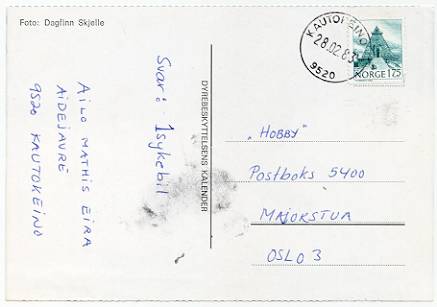 Foto: Dagfinn Skjelle
Svar: 1sykebil
AILO MATHIS EIRA
AIDEJAVRE
9520 KAUTOKEINO
DYREBESKYTTELSENS KALENDER
KAUTOKEINO
28.02.83
9520
NORGE 175
„HOBBY"
Postboks 5400
MAJORSTUA
OSLO 3